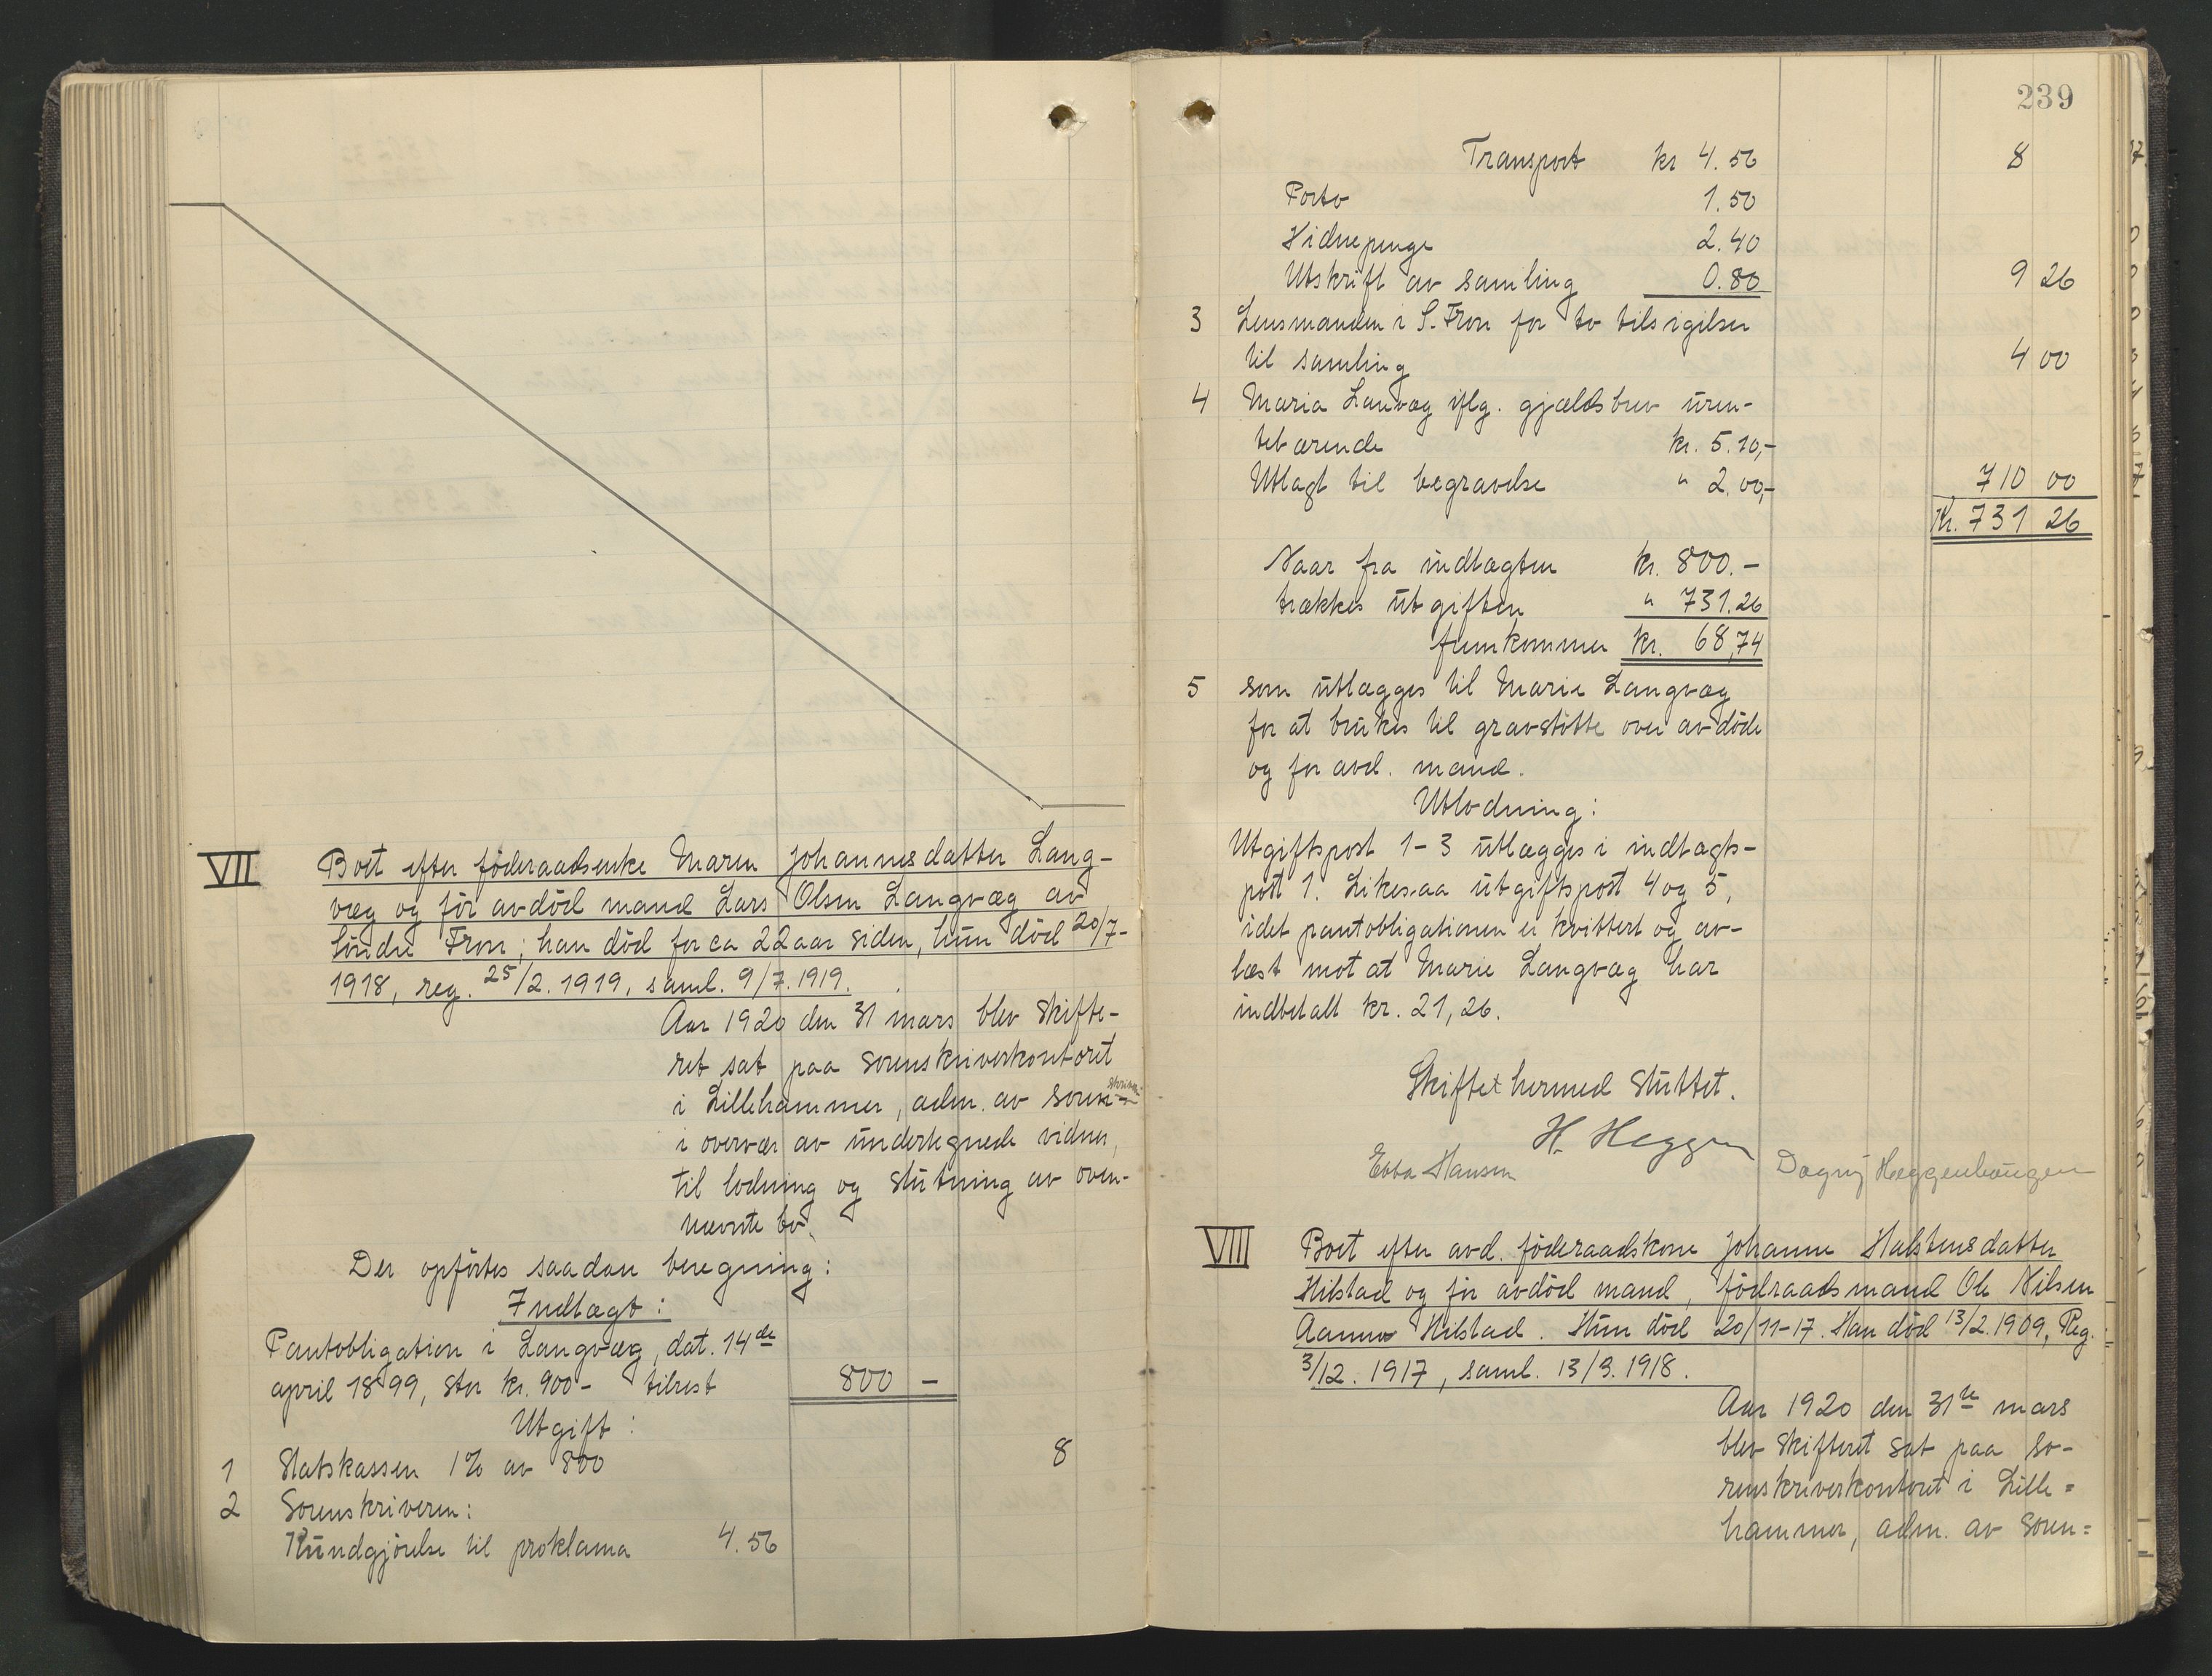 VII Boet efter föderaadsenke Maren Johannesdatter Lang-
væg og för avdöd mand Lars Olsen Langvæg av
Söndre Fron; han död for ca 22 aar siden, hun död 20/7-
1918, reg. 25/2. 1919, saml. 9/7. 1919.
Aar 1920 den 31 mars blev skifte-
ret sat paa sorenskriverkontoret
i Lillehammer, adm. av soren-
i overvær av undertegnede vidner,
til lodning og slutning av oven-
nævnte bo.
Der opförtes saadan beregning:
Indtægt:
Pantobligation i Langvæg, dat. 14de
april 1899, stor kr. 900- tilrest 800 -
Utgift:
1 Statskassen 1% av 800 8
2 Sorenskriveren:
Kundgjörelse til proklama 4.56
239
Transport kr 4.56 8
Porto 1.50
Vidnepenge 2.40
Utskrift av samling 0.80 9 26
3 Lensmanden i S. Fron for to tilsigelser
til samling 4 00
4 Maria Lanvæg iflg. gjældsbrev uren-
tebærende kr. 5.10,-
Utlagt til begravelse " 2.00,- 710 00
Kr. 731 26
Naar fra indtægten kr. 800.-
trækkes utgiften " 731.26
fremkommer kr. 68,74
5 som utlægges til Marie Langvæg
for at brukes til gravstötte over avdöde
og for avd. mand.
Utlodning:
Utgiftspost 1-3 utlægges i indtægts-
post 1. Likesaa utgiftspost 4 og 5,
idet pantobligationen er kvittert og av-
læst mot at Marie Langvæg har
indbetalt kr. 21,26.
Skiftet hermed sluttet.
H. Heggen
Ebba Hansen Dagny Heggenhaugen
VIII Boet efter avd. föderaadskone Johanne Halstensdatter
Hilstad og för avdöd mand, födraadsmand Ole Nilsen
Aamo Hilstad. Hun död 20/11-17. Han död 13/2. 1909, Reg.
3/12. 1917, saml. 13/3. 1918.
Aar 1920 den 31te mars
blev skifteret sat paa so-
renskriverkontoret i Lille=
hammer, adm. av soren=